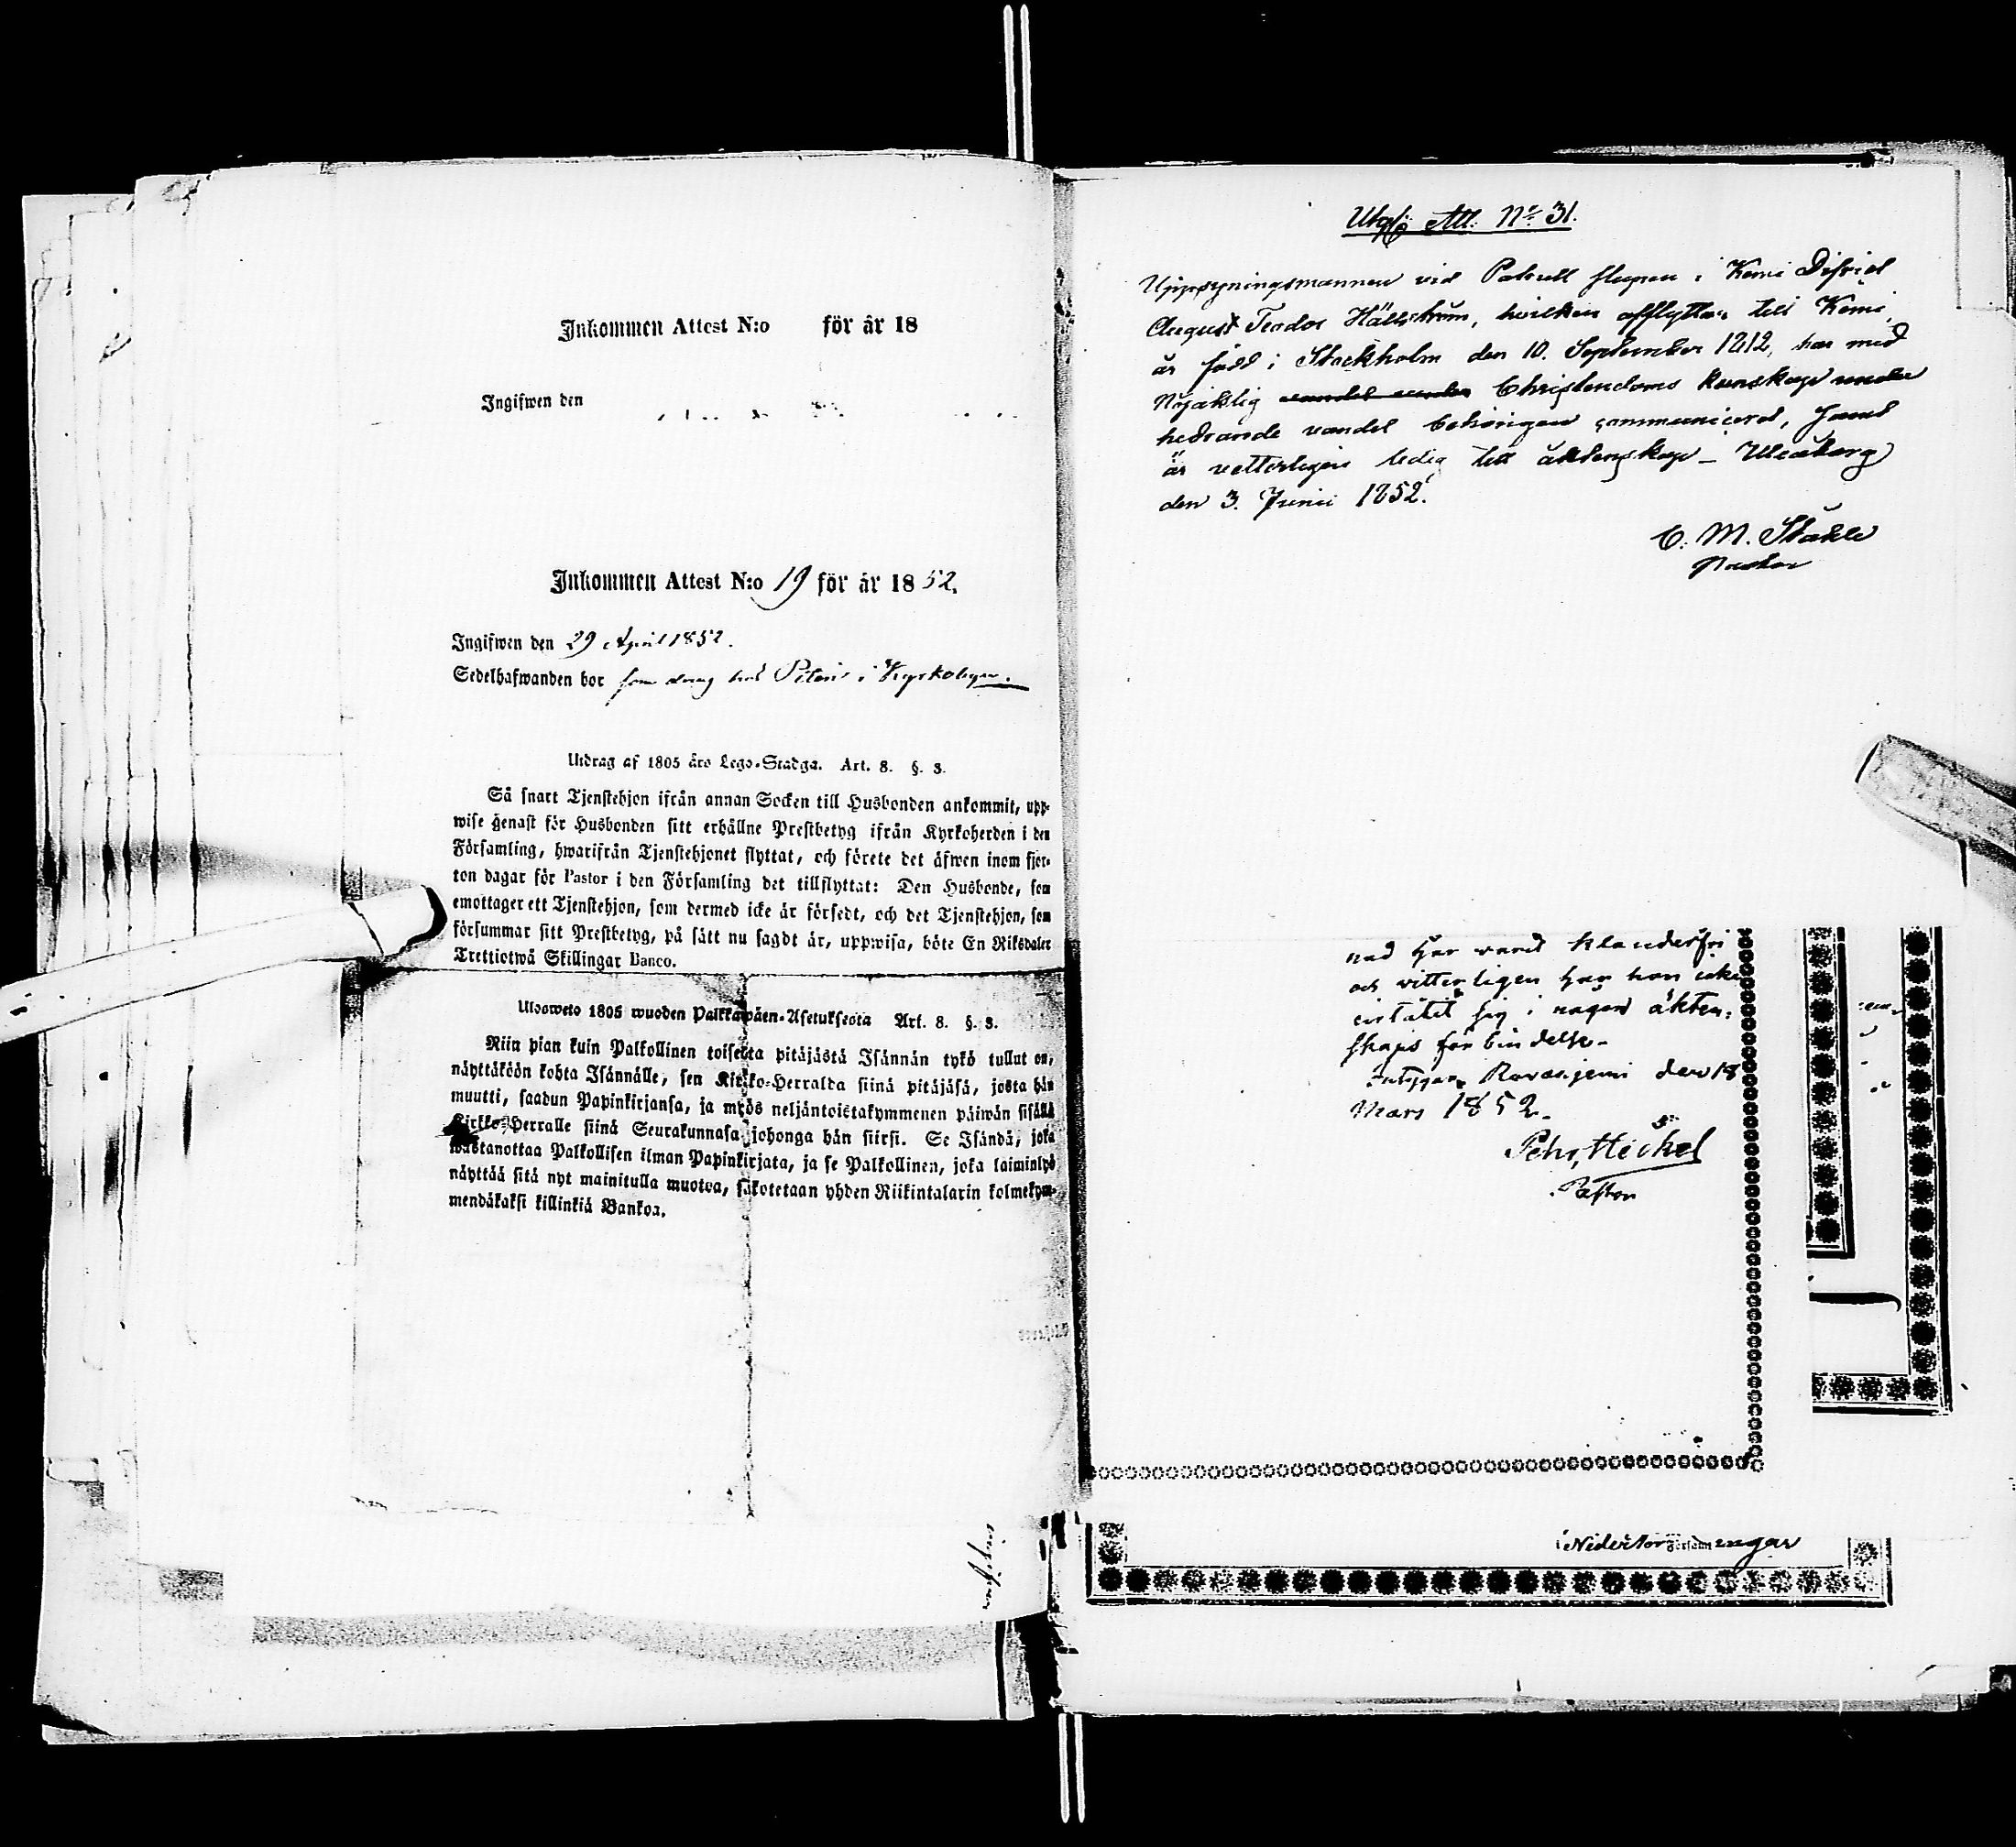 Inkommen Attest N:o för år 18
Ingifwen den
Inkommen Attest N:o 19 för år 1852.
Ingifwen den 29 April 1852.
Sedelhafwanden bor som dräng hos Peteri i Kyrkobyn.
Utdrag af 1805 års Lego-Stadga. Art. 8. §. 3.
Så snart Tjenstehjon ifrån annan Socken till Husbonden ankommit, upp-
wise genast för Husbonden sitt erhållne Prestbetyg ifrån Kyrkoherden i den
Församling, hwarifrån Tjenstehjonet flyttat, och förete det äfwen inom fjor-
ton dagar för Pastor i den Församling det tillflyttat: Den Husbonde, som
emottager ett Tjenstehjon, som dermed icke är försedt, och det Tjenstehjon, som
försummar sitt Prestbetyg, på sätt nu sagdt är, uppwisa, böte En Riksdaler
Trettiotwå Skillingar Banco.
Ulosweto 1805 wuoden Palkkawäen-Asetuksesta Art. 8. §. 3.
Niin pian kuin Palkollinen toisesta pitäjästä Isännän tykö tullut on,
näyttäköön kohta Isännälle, sen Kirkko-Herralda siinä pitäjäsä, josta hän
muutti, saadun Papinkirjansa, ja myös neljäntoistakymmenen päiwän sisällä
Kirkko-Herralle siinä Seurakunnasa johonga hän siirsi. Se Isändä, joka
wastanottaa Palkollisen ilman Papinkirjata, ja se Palkollinen, joka laiminlyö
näyttää sitä nyt mainitulla muotoa, sakotetaan yhden Riikintalarin kolmekym-
mendäkaksi killinkiä Bankoa.
Utgft Att. No 31.
Uppsyningsmannen vid Patrull slupen i Kemi District
August Teodor Hällström, hvilken afflyttar till Kemi,
är född i Stockholm den 10. September 1812, har med
Nöjaktig Christendoms kunskap under
hedrande vandel behörigen communicerat, samt
är vetterligen ledig till äktenskap – Uleåborg
den 3. Junii 1852.
C. M. Ståhle
Pastor
nad har varit klanderfri
och vitterligen har han icke
inlåtit sig i något äkten-
skaps förbindelse.
Rovaniemi den 18
Mars 1852.
Pehr Heickel
Pastor